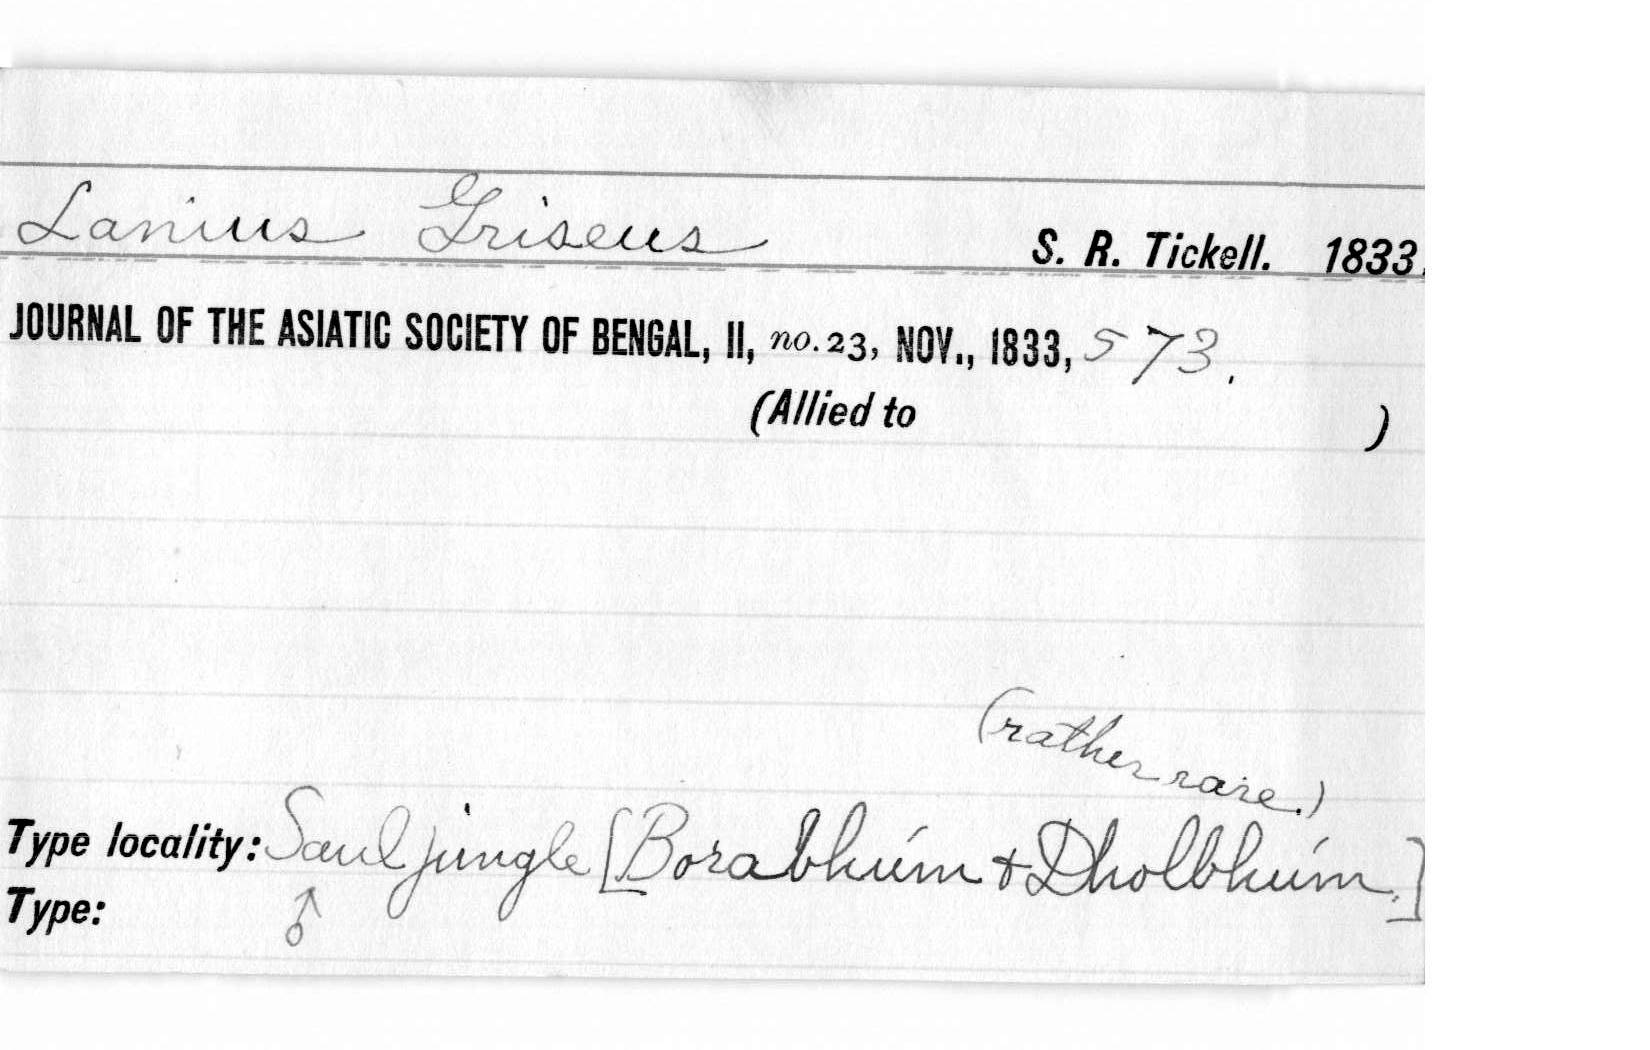 Lanius Griseus S. R. Tickell. 1833.
JOURNAL OF THE ASIATIC SOCIETY OF BENGAL, II, no. 23, NOV., 1833, 573.
(Allied to )
(rather rare.)
Type locality: Saul jungle [Borabhúm + Dholbhúm.]
Type: ♂